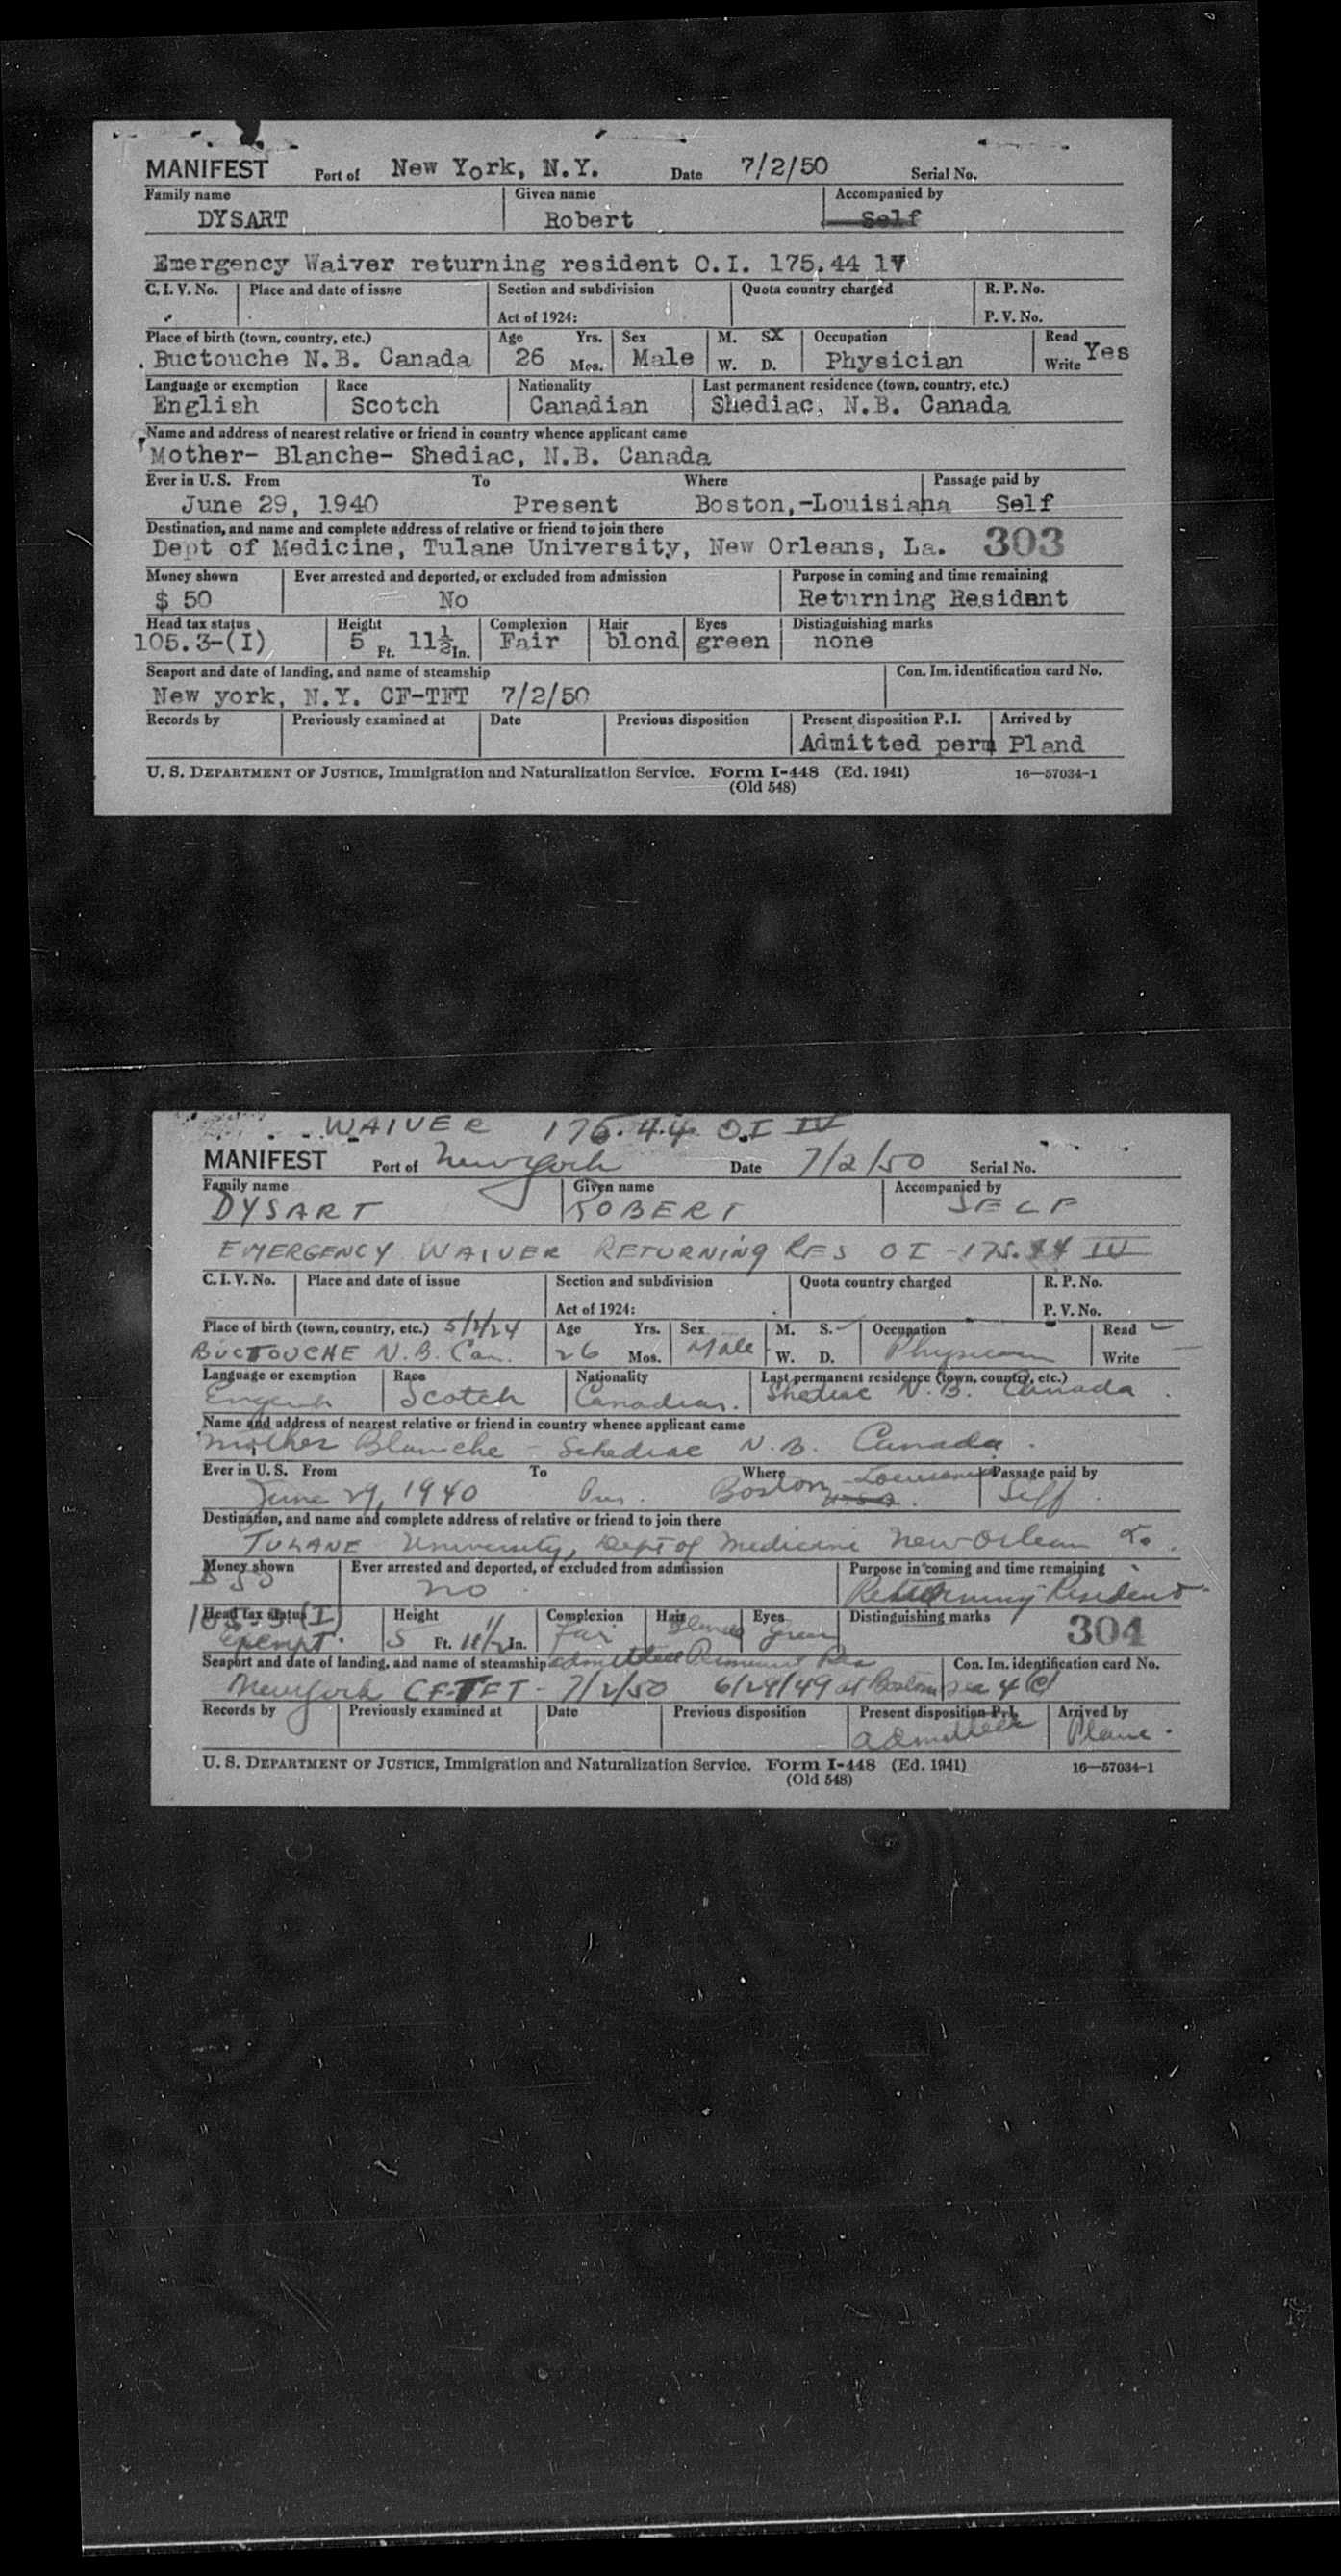 MANIFEST Port of New York, N.Y. Date 7/2/50 Serial No.
Family name Given name Accompanied by
DYSART Robert Self
Emergency Waiver returning resident O.I. 175.44 1V
C. I. V. No. Place and date of issue Section and subdivision Quota country charged R. P. No.
Act of 1924: P. V. No.
Place of birth (town, country, etc.) Age Yrs. Sex M. SX Occupation Read
Buctouche N.B. Canada 26 Mos. Male W. D. Physician Write Yes
Language or exemption Race Nationality Last permanent residence (town, country, etc.)
English Scotch Canadian Shediac, N.B. Canada
Name and address of nearest relative or friend in country whence applicant came
Mother- Blanche- Shediac, N.B. Canada
Ever in U. S. From To Where Passage paid by
June 29, 1940 Present Boston,-Louisiana Self
Destination, and name and complete address of relative or friend to join there
Dept of Medicine, Tulane University, New Orleans, La. 303
Money shown Ever arrested and deported, or excluded from admission Purpose in coming and time remaining
$ 50 No Returning Resident
Head tax status Height Complexion Hair Eyes Distinguishing marks
105.3-(I) 5 Ft. 11½ In. Fair blond green none
Seaport and date of landing, and name of steamship Con. Im. identification card No.
New york, N.Y. CF-TFT 7/2/50
Records by Previously examined at Date Previous disposition Present disposition P. I. Arrived by
Admitted perm Pland
U. S. DEPARTMENT OF JUSTICE, Immigration and Naturalization Service. Form I-448 (Ed. 1941) 16—57034-1
(Old 548)
WAIVER 175.44 O.I IV
MANIFEST Port of New York Date 7/2/50 Serial No.
Family name Given name Accompanied by
DYSART ROBERT SELF
EMERGENCY WAIVER RETURNING RES OI-175.44 IV
C. I. V. No. Place and date of issue Section and subdivision Quota country charged R. P. No.
Act of 1924: P. V. No.
Place of birth (town, country, etc.) Age Yrs. Sex M. S. Occupation Read
BUCTOUCHE N.B. Can. 26 Mos. Male W. D. Physician Write
Language or exemption Race Nationality Last permanent residence (town, country, etc.)
English Scotch Canadian. Shediac N.B. Canada
Name and address of nearest relative or friend in country whence applicant came
Mother Blanche - Schediac N.B. Canada
Ever in U. S. From To Where Passage paid by
June 29, 1940 Boston Louisiana Self
Destination, and name and complete address of relative or friend to join there
TULANE University, Dept of Medicine New Orlean La.
Money shown Ever arrested and deported, or excluded from admission Purpose in coming and time remaining
no Returning Resident
Head tax status Height Complexion Hair Eyes Distinguishing marks 304
105.3(I) Exempt 5 Ft. 11 1/2 In. Fair Blond green
Seaport and date of landing, and name of steamship admitted Permanent Res Con. Im. identification card No.
New York CF-TFT - 7/2/50 6/29/49 at Boston Sec 4 (c)
Records by Previously examined at Date Previous disposition Present disposition P. I. Arrived by
admitted Plane.
U. S. DEPARTMENT OF JUSTICE, Immigration and Naturalization Service. Form I-448 (Ed. 1941) 16—57034-1
(Old 548)